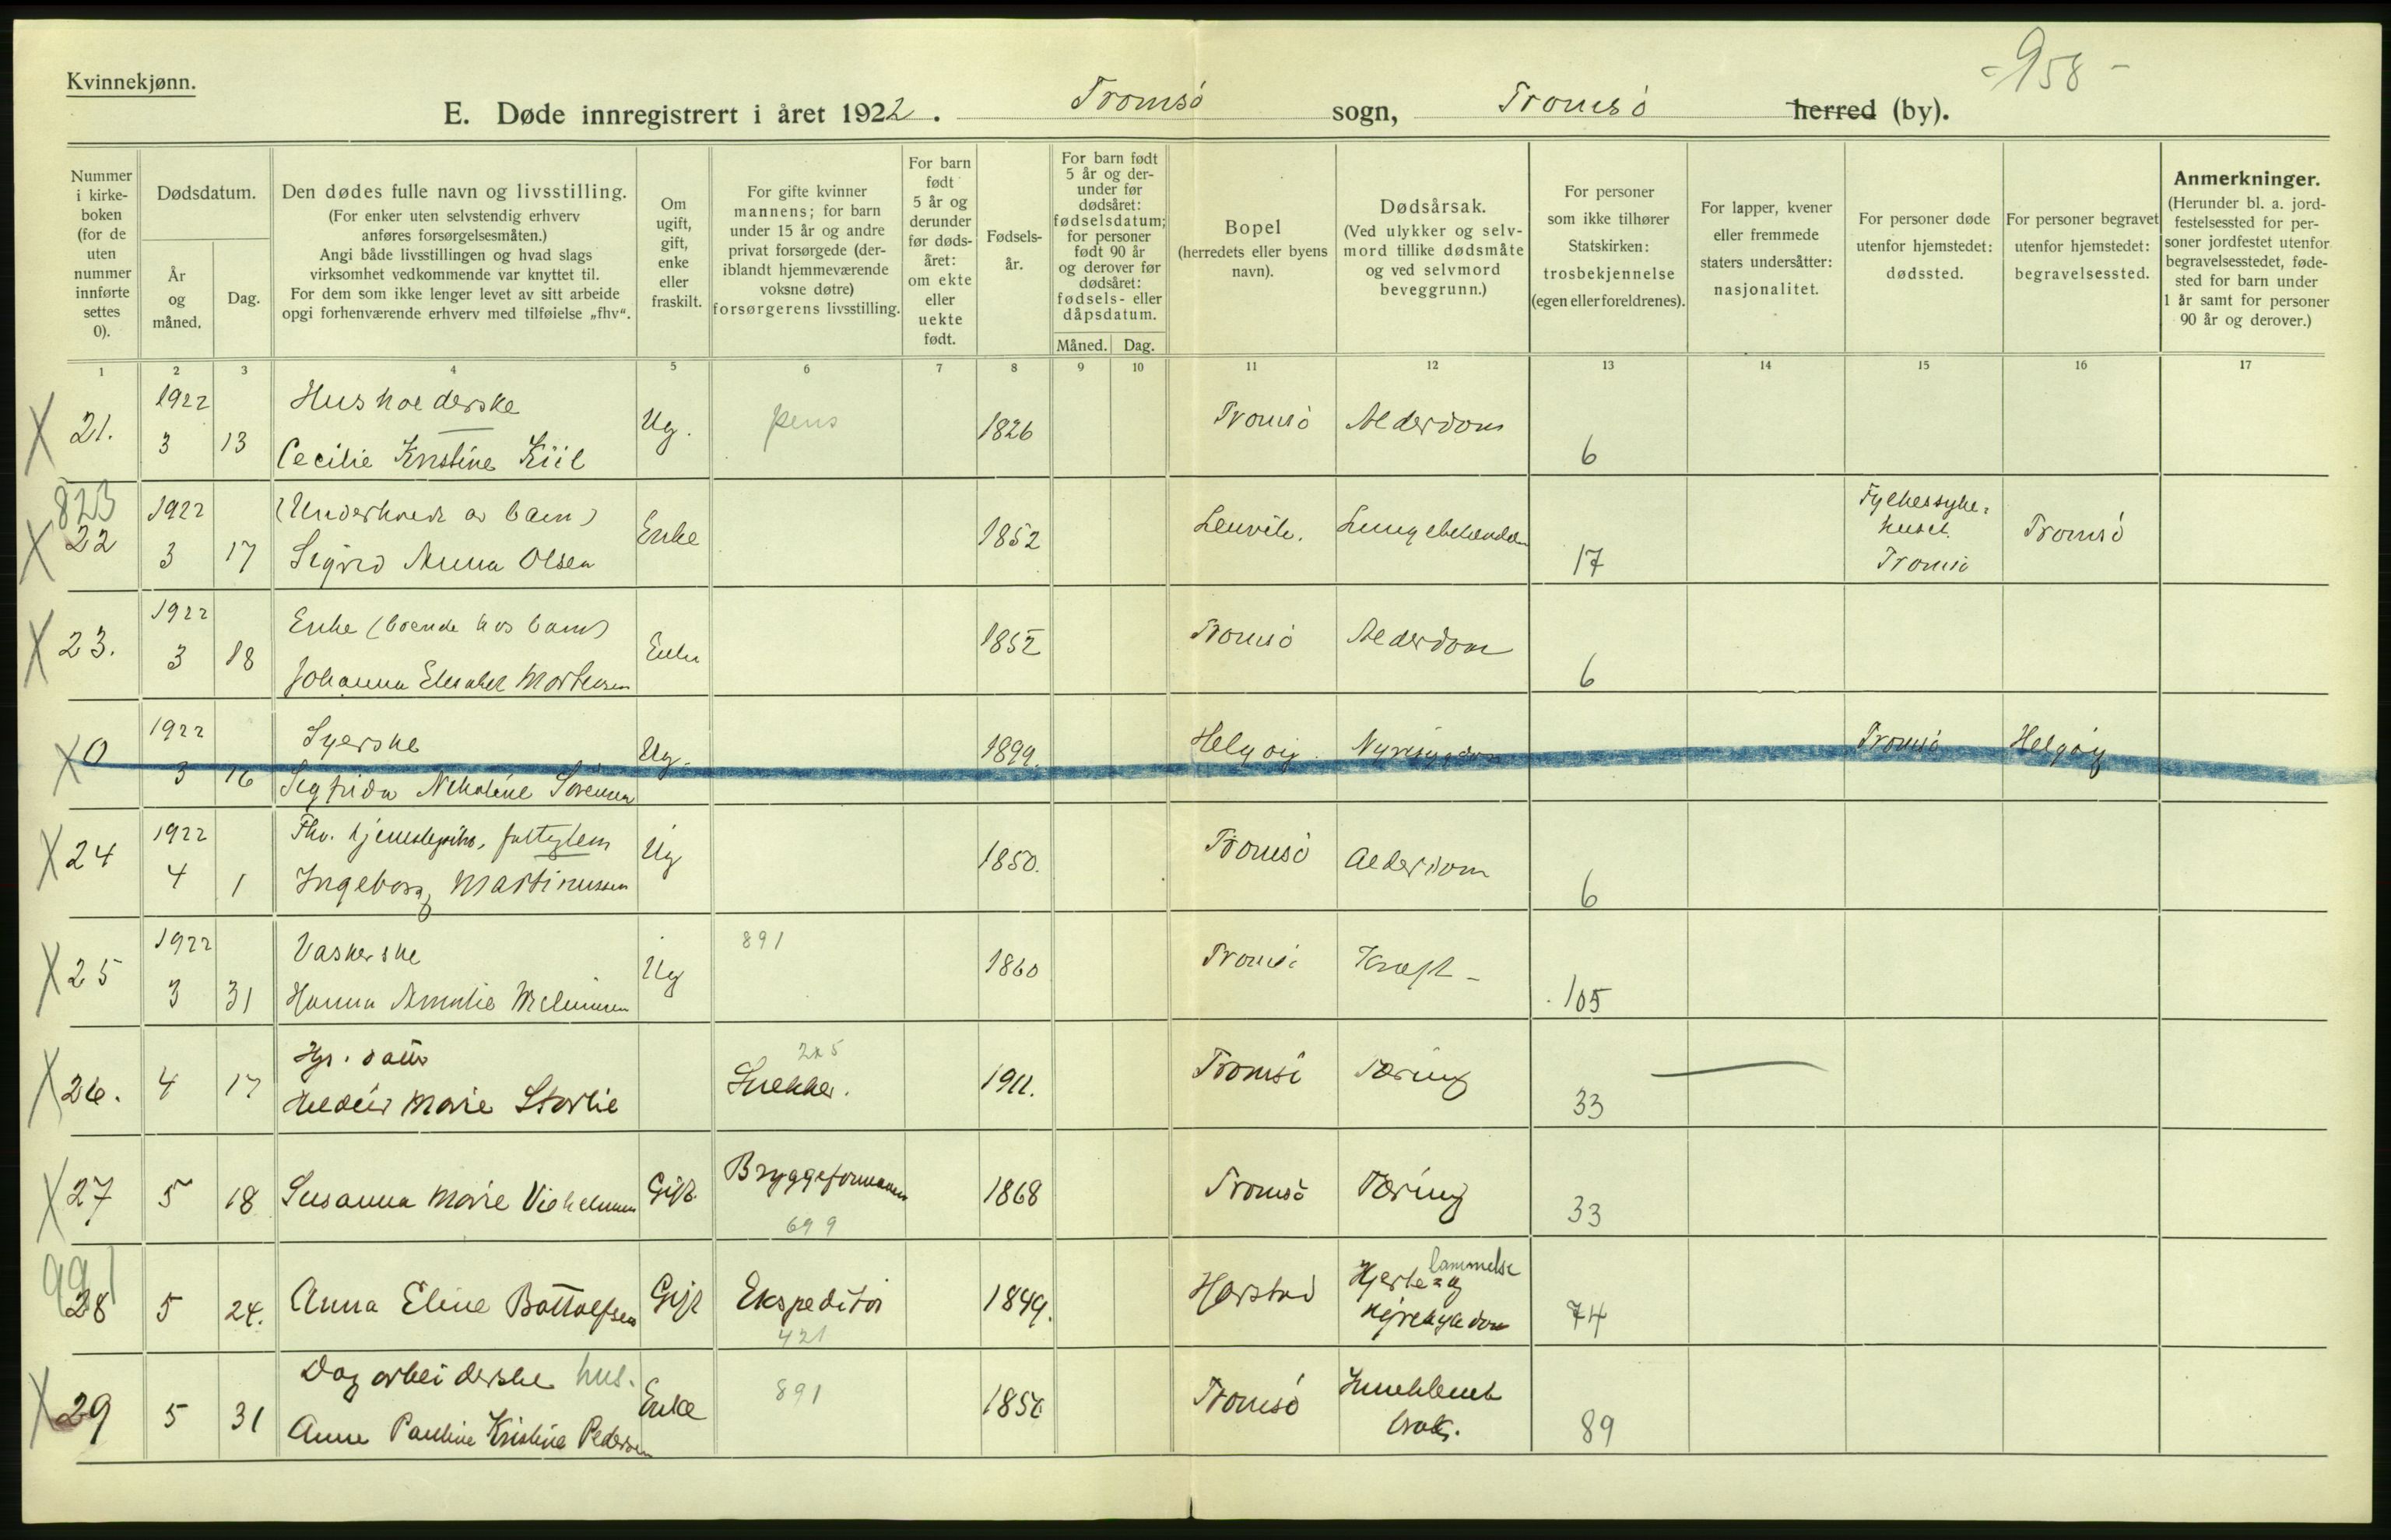 Kvinnekjønn.
- 958 -
E. Døde innregistrert i året 1922. Tromsö sogn, Tromsö herred (by).
Nummer
i kirke-
boken
(for de
uten
nummer
innførte
settes
0).
Dødsdatum.
År
og
måned.
Dag.
Den dødes fulle navn og livsstilling.
(For enker uten selvstendig erhverv
anføres forsørgelsesmåten.)
Angi både livsstillingen og hvad slags
virksomhet vedkommende var knyttet til.
For dem som ikke lenger levet av sitt arbeide
opgi forhenværende erhverv med tilføielse „fhv“.
Om
ugift,
gift,
enke
eller
fraskilt.
For gifte kvinner
mannens; for barn
under 15 år og andre
privat forsørgede (der-
iblandt hjemmeværende
voksne døtre)
forsørgerens livsstilling.
For barn
født
5 år og
derunder
før døds-
året:
om ekte
eller
uekte
født.
Fødsels-
år.
For barn født
5 år og der-
under før
dødsåret:
fødselsdatum;
for personer
født 90 år
og derover før
dødsåret:
fødsels- eller
dåpsdatum.
Måned. Dag.
Bopel
(herredets eller byens
navn).
Dødsårsak.
(Ved ulykker og selv-
mord tillike dødsmåte
og ved selvmord
beveggrunn.)
For personer
som ikke tilhører
Statskirken:
trosbekjennelse
(egen eller foreldrenes).
For lapper, kvener
eller fremmede
staters undersåtter:
nasjonalitet.
For personer døde
utenfor hjemstedet:
dødssted.
For personer begravet
utenfor hjemstedet:
begravelsessted.
Anmerkninger.
(Herunder bl. a. jord-
festelsessted for per-
soner jordfestet utenfor
begravelsesstedet, føde-
sted for barn under
1 år samt for personer
90 år og derover.)
1 2 3 4 5 6 7 8 9 10 11 12 13 14 15 16 17
X 21. 1922 3 13 Husholderske
Cecilie Kristine Kiil Ug. pens 1826 Tromsö Alderdom 6
823
X 22 1922 3 17 (Underholdt av barn)
Sigrid Anna Olsen Enke 1852 Lenvik. Lungebetendelse 17 Fylkessyke-
huset
Tromsö Tromsö
X 23. 1922 3 18 Enke (boende hos barn)
Johanna Elisabet Mortensen Enke 1852 Tromsö Alderdom 6
X 0 1922 3 16 Syerske
Sigfrida Nikoline Sörensen Ug. 1899. Helgöy Nyresygdom Tromsö Helgöy
X 24 1922 4 1 Fhv. tjenestepike, fattiglem
Ingeborg Martinussen Ug 1850. Tromsö Alderdom 6
X 25 1922 3 31 Vaskerske
Hanna Amalie Ug 891 1860 Tromsö Kræft - 105
X 26. 4 17 Hjv. datter
Marie Storlie 285 Snekker. 1911. Tromsö Tæring 33
X 27 5 18 Susanna Marie Vilhelmsen Gift Bryggeformann 699 1868 Tromsö Tæring 33
991
28 5 24. Anna Eline Bottolfsen Gift Ekspeditör 421 1849. Harstad Hjerte- og lammelse
nyresykdom 74
X 29 5 31 Dagarbeiderske hus.
Anne Pauline Kristine Pedersen Enke 891 1850 Tromsö Inneklemt
brok. 89